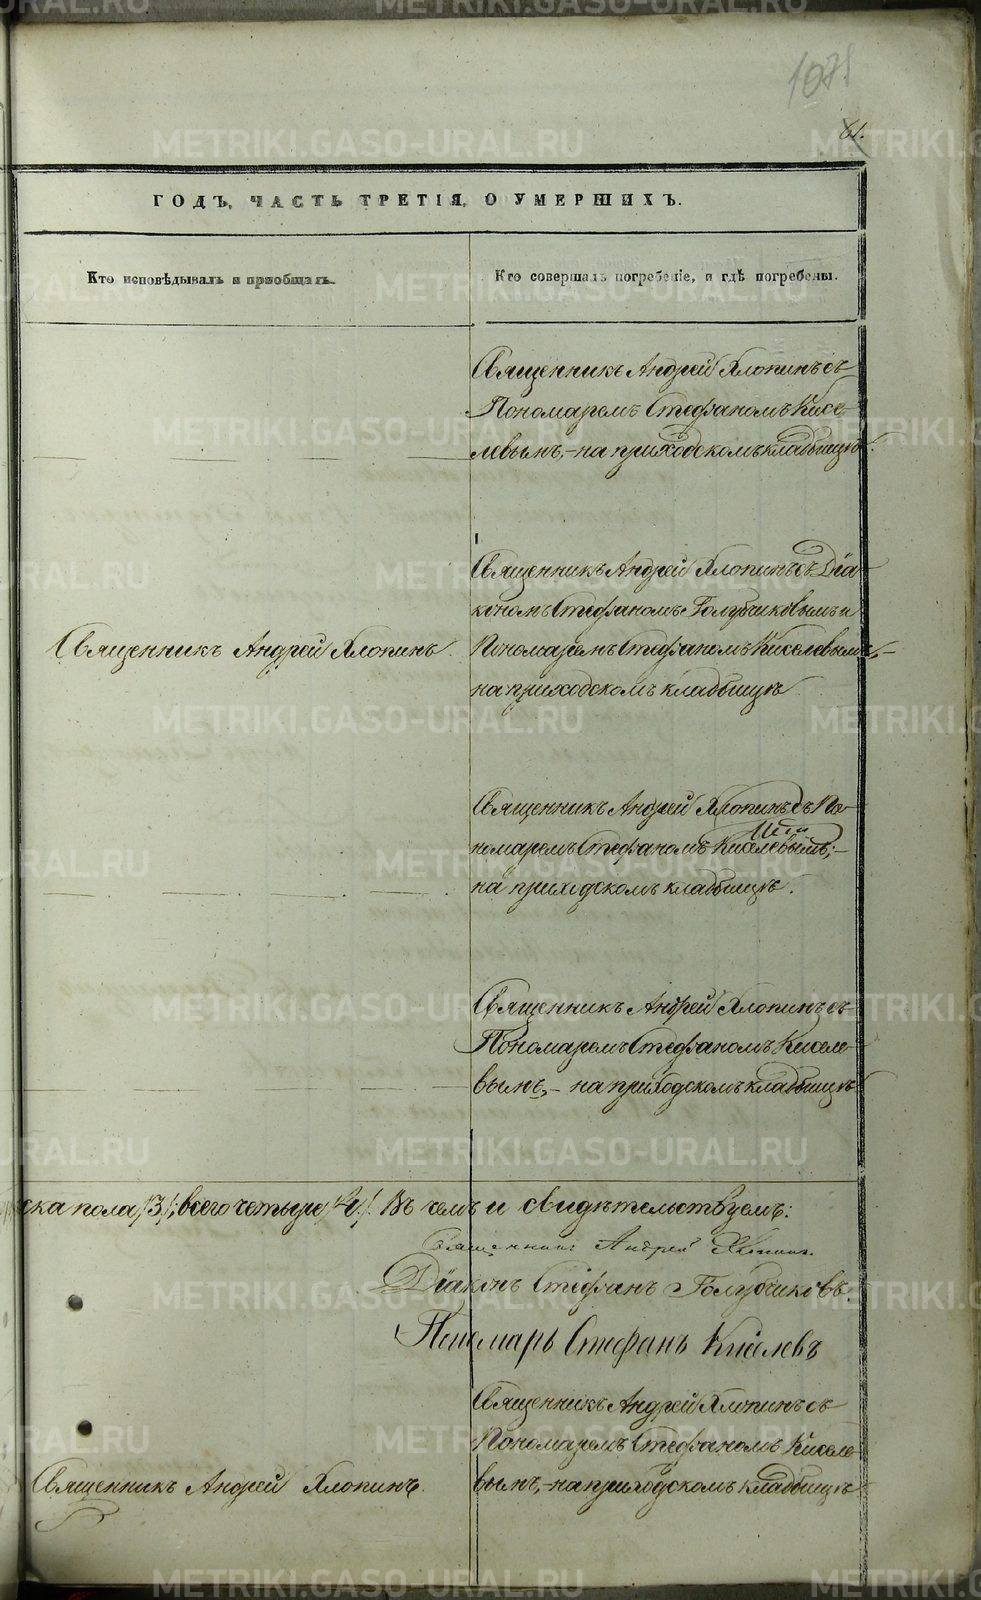 107
61.
ГОДЪ, ЧАСТЬ ТРЕТІЯ, О УМЕРШИХЪ.
Кто исповѣдывалъ и пріобщалъ.
Кто совершалъ погребеніе, и гдѣ погребены.
Священникъ Андрей Хлопинъ съ
Пономаремъ Стефаномъ Кисе-
левымъ,-на приходскомъ кладбищѣ.
Священникъ Андрей Хлопинъ съ Діа-
кономъ Стефаномъ Голубчиковымъ и
Священникъ Андрей Хлопинъ.
Пономаремъ Стефаномъ Киселевымъ,-
на приходскомъ кладбищѣ.
Священникъ Андрей Хлопинъ съ По-
номаремъ Стефаномъ Киселевымъ;-
на приходскомъ кладбищѣ.
Священникъ Андрей Хлопинъ съ
Пономаремъ Стефаномъ Киселе-
вымъ,- на приходскомъ кладбищѣ
ска пола /3/; всего четыре /4/. Въ чемъ и свидѣтельствуемъ:
Священникъ Андрей Хлопинъ.
Діаконъ Стефанъ Голубчиковъ.
Пономарь Стефанъ Киселевъ
Священникъ Андрей Хлопинъ съ
Пономаремъ Стефаномъ Киселе-
Священникъ Андрей Хлопинъ.
вымъ,-на приходскомъ кладбищѣ
METRIKI.GASO-URAL.RU